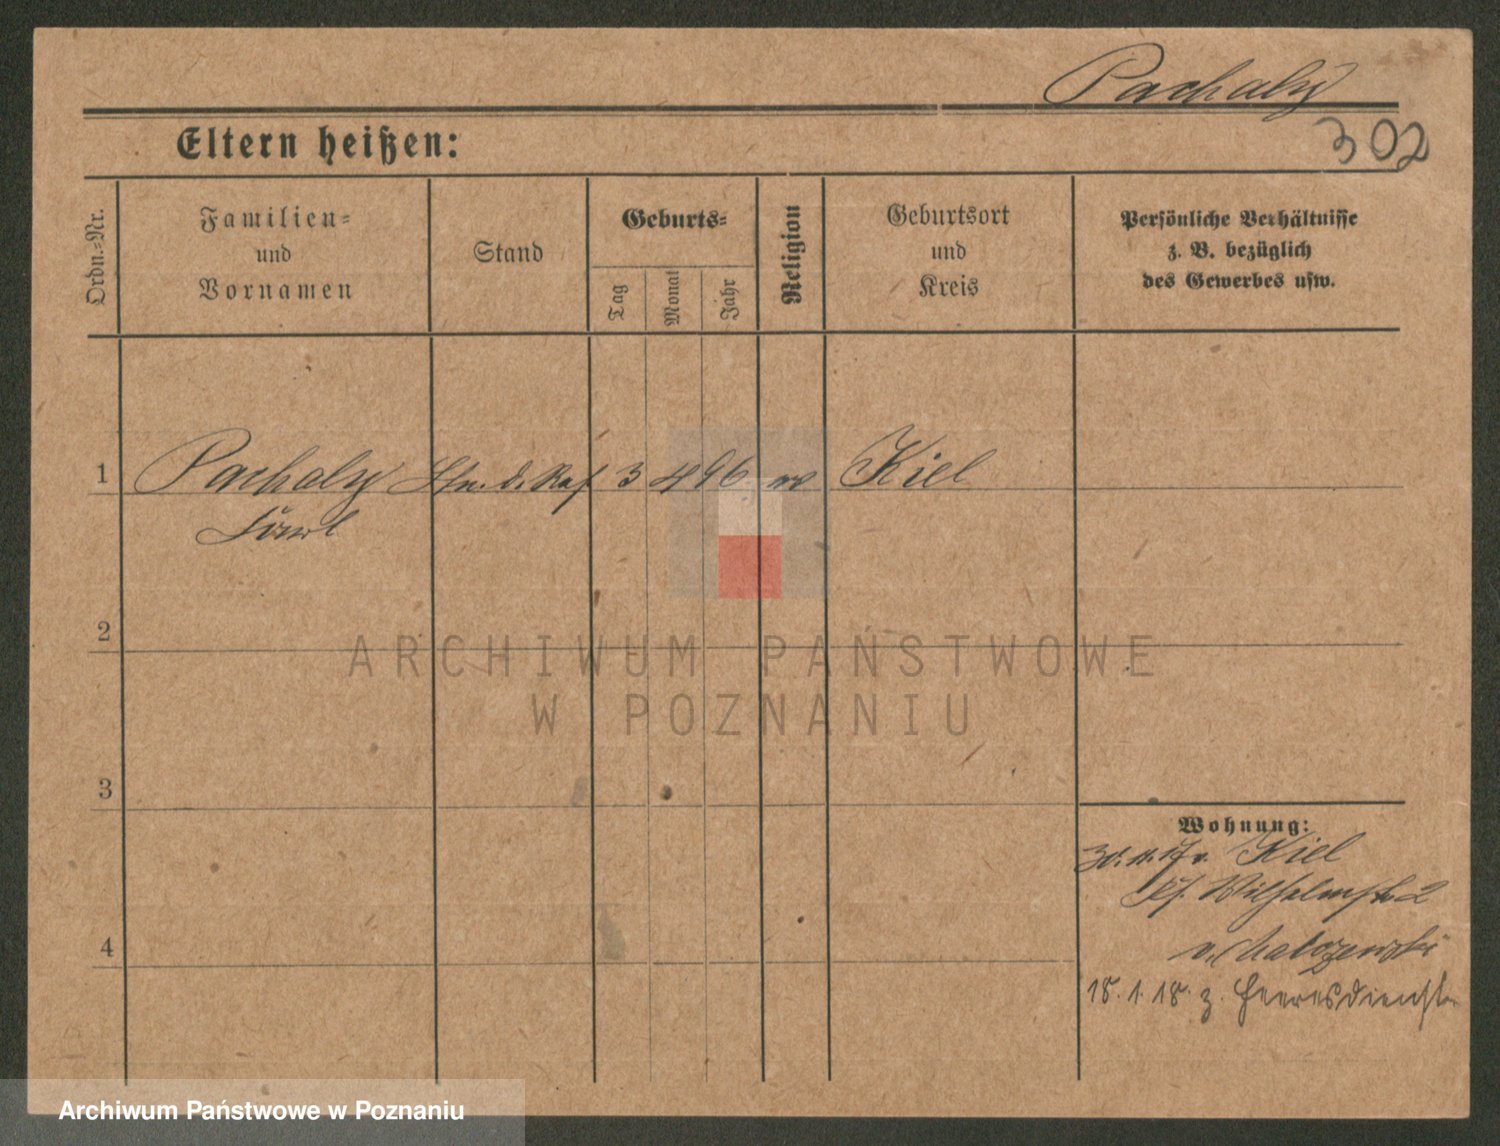 Pachaly
302
Eltern heißen:
Ordn.-Nr.
Familien-
und
Vornamen
Stand
Geburts-
Tag
Monat
Jahr
Religion
Geburtsort
und
Kreis
Persönliche Verhältnisse
z. B. bezüglich
des Gewerbes usw.
1 Pachaly 3 4 96 Kiel
2
3
4
Wohnung:
30.11.17 v. Kiel
Wilhelmstr. 2
v. Malczewski
18.1.18. z. Heeresdienst
ARCHIWUM PAŃSTWOWE
W POZNANIU
Archiwum Państwowe w Poznaniu